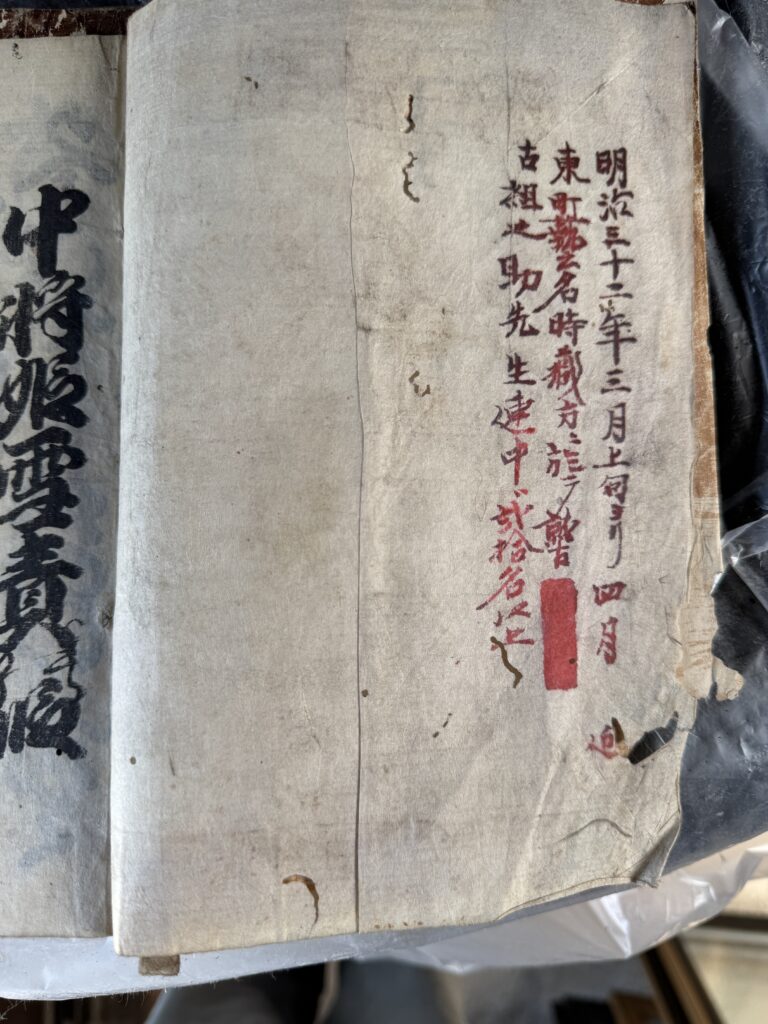 明治三十二年三月上旬ヨリ四月迫
東町藝名時蔵方ニ於テ
古之助先生連中弐拾名以上
中将姫雪責段